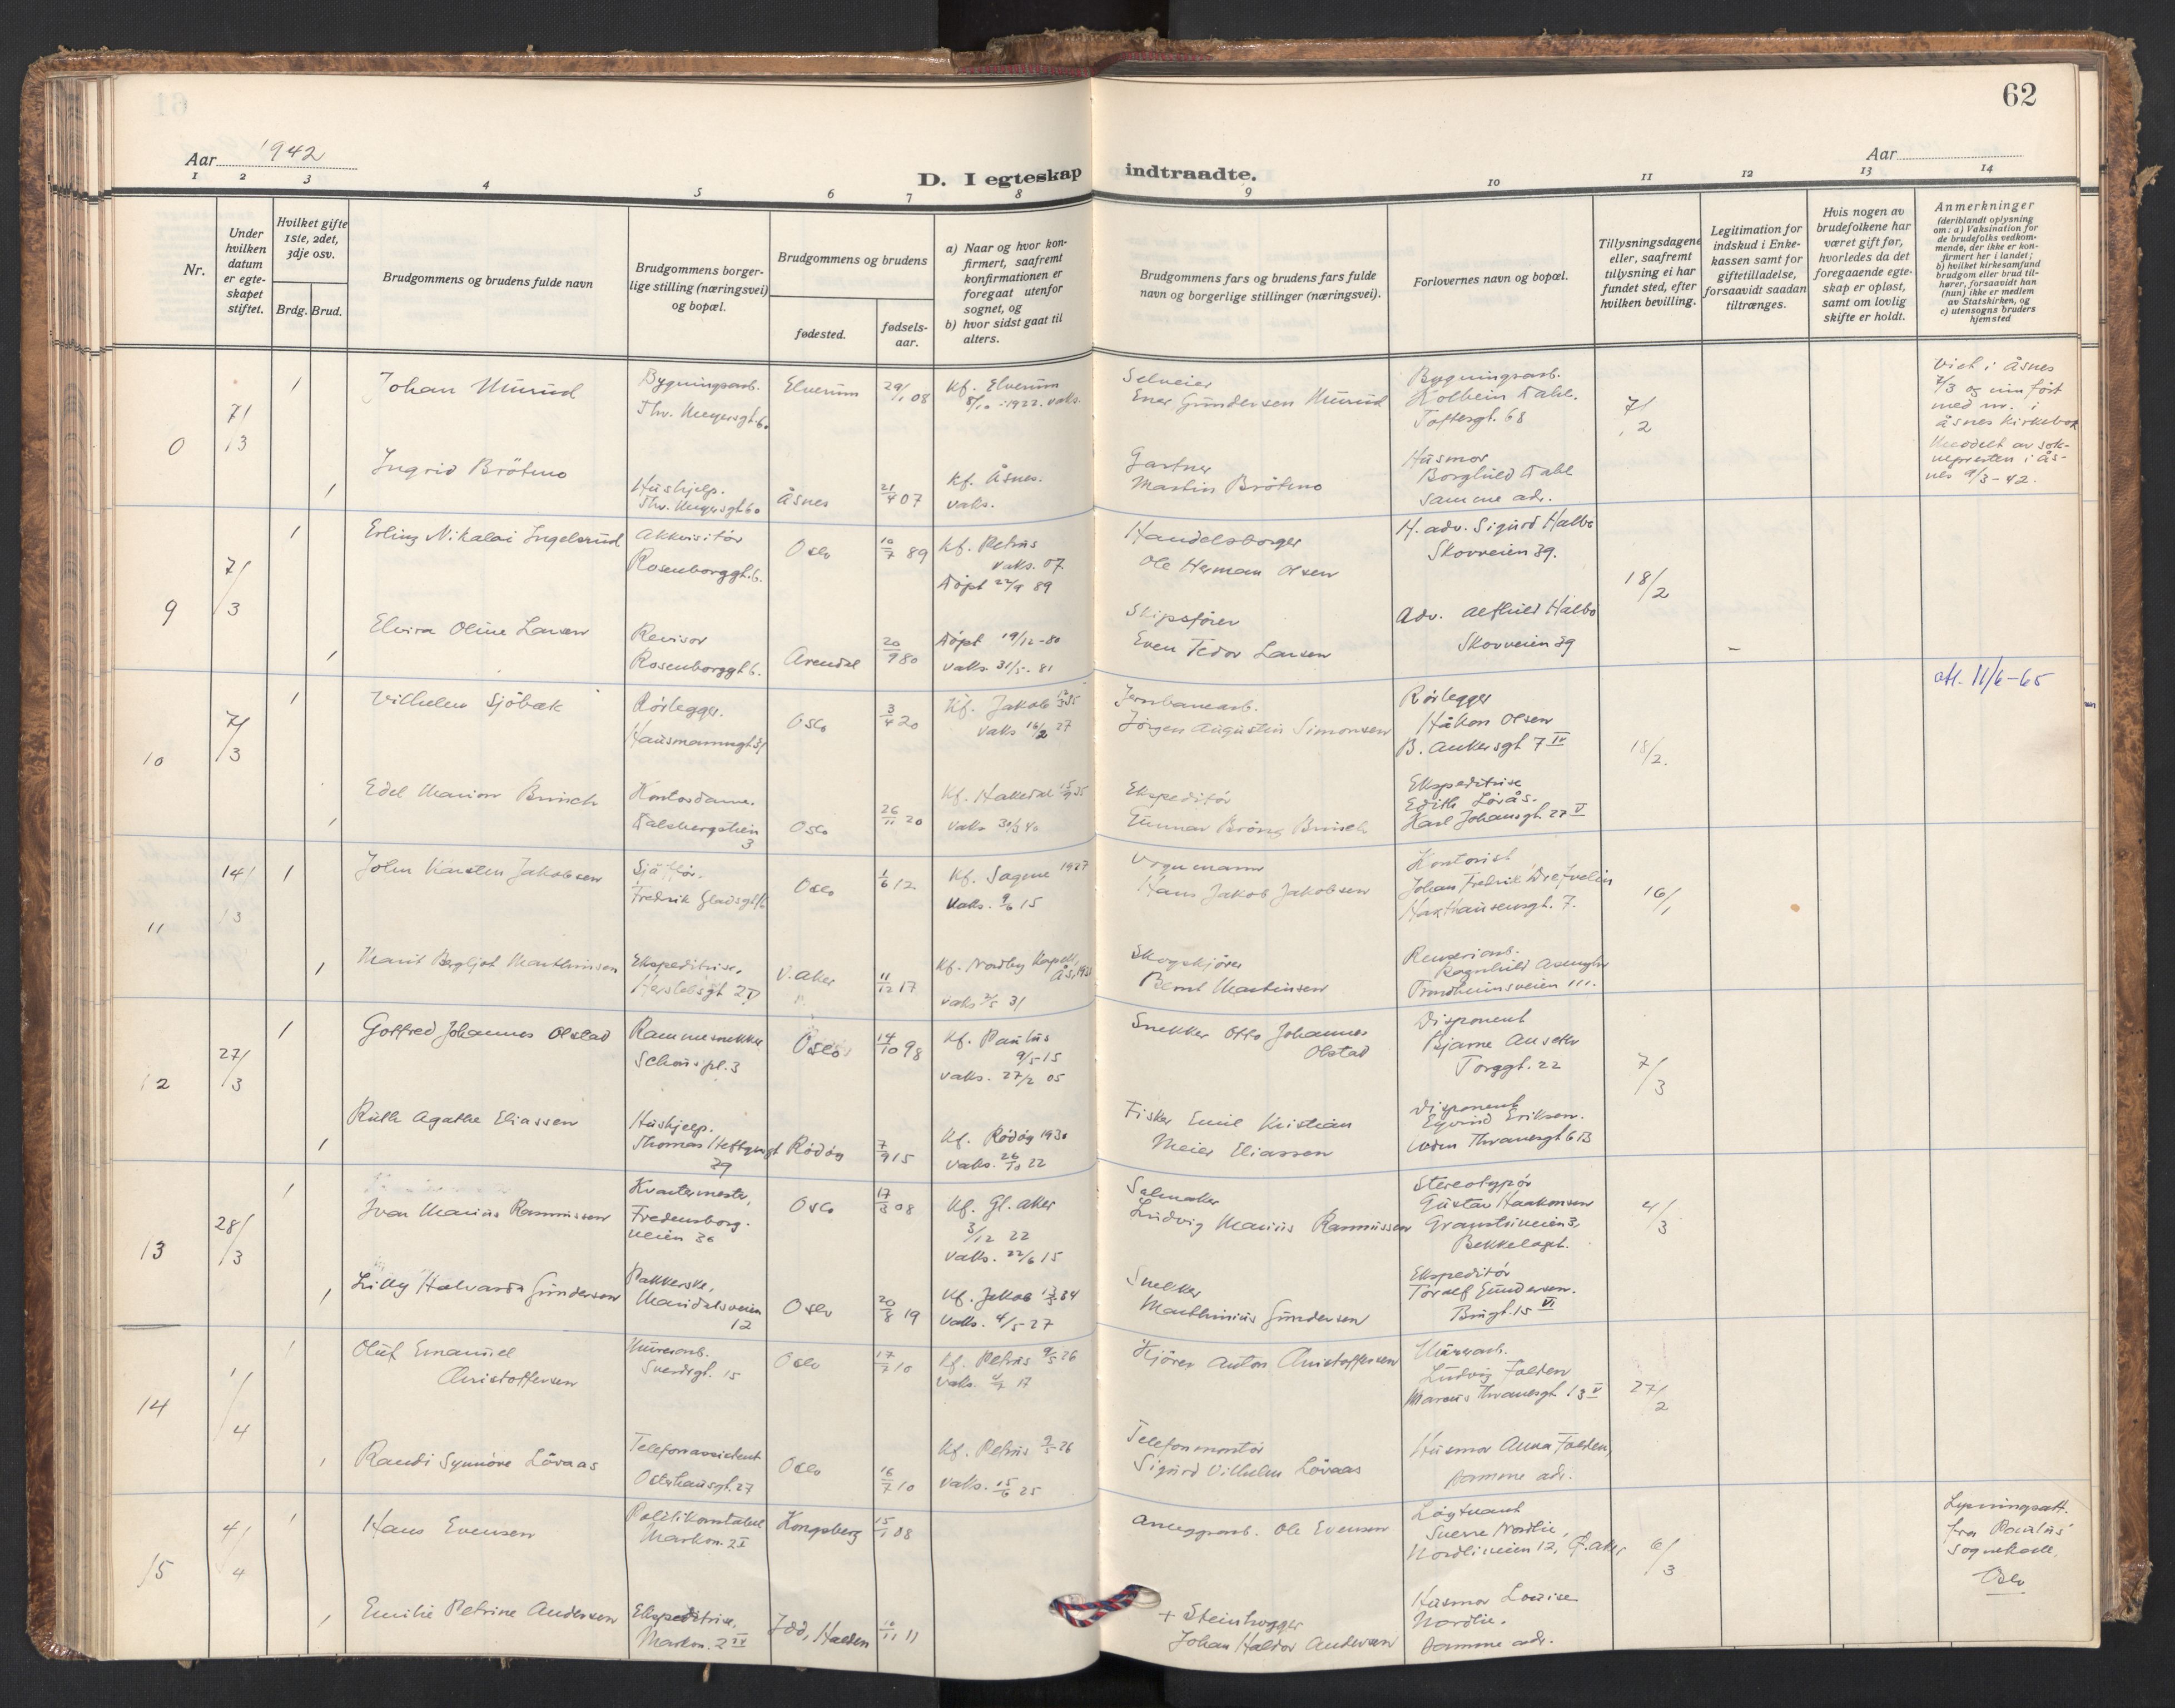 62
Aar 1942
Aar
D. I egteskap indtraadte.
1 2 3 4 5 6 7 8 9 10 11 12 13 14
Nr.
Under hvilken datum er egteskapet stiftet.
Hvilket gifte 1ste, 2det, 3dje osv.
Brdg. Brud.
Brudgommens og brudens fulde navn
Brudgommens borgerlige stilling (næringsvei) og bopæl.
Brudgommens og brudens
fødested.
fødselsaar.
a) Naar og hvor konfirmert, saafremt konfirmationen er foregaat utenfor sognet, og
b) hvor sidst gaat til alters.
Brudgommens fars og brudens fars fulde navn og borgerlige stillinger (næringsvei).
Forlovernes navn og bopæl.
Tillysningsdagene eller, saafremt tillysning ei har fundet sted, efter hvilken bevilling.
Legitimation for indskud i Enkekassen samt for giftetilladelse, forsaavidt saadan tiltrænges.
Hvis nogen av brudefolkene har været gift før, hvorledes da det foregaaende egteskap er opløst, samt om lovlig skifte er holdt.
Anmerkninger
(deriblandt oplysning om: a) Vaksination for de brudefolks vedkommende, der ikke er konfirmert her i landet;
b) hvilket kirkesamfund brudgom eller brud tilhører, forsaavidt han (hun) ikke er medlem av Statskirken, og
c) utensogns bruders hjemsted
0 7/3 1 Johan Murud Bygningsarb. Thv. Meyersgt. 60 Elverum 29/1 08 Kf. Elverum 8/10 1922. vaks.
Selveier Ener Gundersen Murud Bygningsarb. Kolbein Dahl. Toftesgt. 68 7/2
Viet i Åsnes 7/3 og innført med nr. i Åsnes kirkebok Meddelt av soknepresten i Åsnes 9/3-42.
1 Ingrid Bråtmo Hushjelp. Thv. Meyersgt 60 Åsnes 21/4 07 Kf. Åsnes. vaks.
Gartner Martin Bråtmo Husmor Borghild Dahl samme adr.
9 7/3 1 Erling Nikolai Ingelsrud Akkvisitør Rosenborggt. 6. Oslo 10/7 89 Kf. Petrus vaks. 07 Døpt 22/9 89
Handelsborger Ole Herman Olsen H. adv. Sigurd Halbo Skovveien 39. 18/2
1 Elvira Oline Larsen Revisor Rosenborggt 6. Arendal 20/9 80 Døpt 19/12-80 vaks. 31/5-81
Skipsfører Even Tedor Larsen Adv. Alfhild Halbo Skovveien 39
10 7/3 1 Vilhelm Sjøbæk Rørlegger. Hausmannsgt 31 Oslo 3/4 20 Kf. Jakob 35 vaks 16/2 27
Jernbanearb. Jørgen Augustin Simonsen Rørlegger Håkon Olsen B. Ankersgt 7 IV 18/2.
att. 11/6-65
1 Edel Marion Bunich Kontordame. Dalsbergstien 3 Oslo 26/11 20 Kf. Hakedal 35 vaks 30/3 40
Ekspeditør Gunnar Bunich Ekspeditrise Edith Løvås. Karl Johansgt. 27 V
11 14/3 1 John Karsten Jakobsen Sjåffør. Fredrik Gladsgt Oslo 1/6 12 Kf. Sagene 1927 vaks. 9/6 15
Vognmann Hans Jakob Jakobsen Kontorist Johan Fredrik Drefvelin Haxthausensgt. 7. 16/1
1 Marit Bergljot Marthinsen Ekspeditrise. Herslebsgt 2 V. Aker 11/12 17 Kf. Nordby Kapell, Ås, 193 vaks 2/5 31
Skogskjører Bernt Martinsen Renseriarb. Ragnhild Trondheimsveien 111.
12 27/3 1 Gotfred Johannes Olstad Rammesnekker Schous pl. 3 Oslo 14/10 98 Kf. Paulus 9/5-15 vaks. 27/2 05
Snekker Otto Johannes Olstad Disponent Bjarne Anseth Torggt. 22 7/3
1 Ruth Agathe Eliassen Hushjelp. Thomas Heftyesgt 29 Rødøy 7/9 15 Kf. Rødøy 1930 vaks. 26/10 22
Fisker Emil Kristian Meier Eliassen Disponent Eyvind Eriksen. Thranesgt 6 B
13 28/3 1 Ivar Marius Rasmussen Kvartermester, Fredensborgveien 36 Oslo 17/3 08 Kf. Gl. Aker 3/12 22 vaks. 22/6 15
Salmaker Ludvig Marius Rasmussen Stereotypør Gustav Haakonsen 3, Bekkelaget. 4/3
1 Lilly Halvarda Gundersen Pakkerske, Maridalsveien 12 Oslo 20/8 19 Kf. Jakob 34 vaks. 4/5-27
Snekker Marthinius Gundersen Ekspeditør Toralf Gundersen. Brugt. 15 VI
14 1/4 1 Oluf Emanuel Christoffersen Murerarb. Sverdrgt. 15 Oslo 17/7 10 Kf. Petrus 9/5 26 vaks. 17
Kjører Anton Christoffersen Murerarb. Ludvig Folden Marcus Thranesgt 13 V 27/2
1 Randi Synnøve Løvaas Telefonassistent Osterhausgt. 27 Oslo 16/7 10 Kf. Petrus 9/5 26 vaks. 15/6 25
Telefonmontør Sigurd Vilhelm Løvaas Husmor Anna Folden, samme adr.
15 4/4 1 Hans Evensen Politikonstabel Markvn. 2 Kongsberg 15/1 08
Anleggsarb. Ole Evensen Løytnant Sverre Nordlie, Nordliveien 12, Ø. Aker 6/3
Lysningsatt. fra Paulus' sognekall, Oslo
1 Emilie Petrine Andersen Ekspeditrise, Markvn. 2 IV Idd, Halden 10/11 11
+ Steinhogger Johan Haldor Andersen Husmor Louise Nordlie. samme adr.